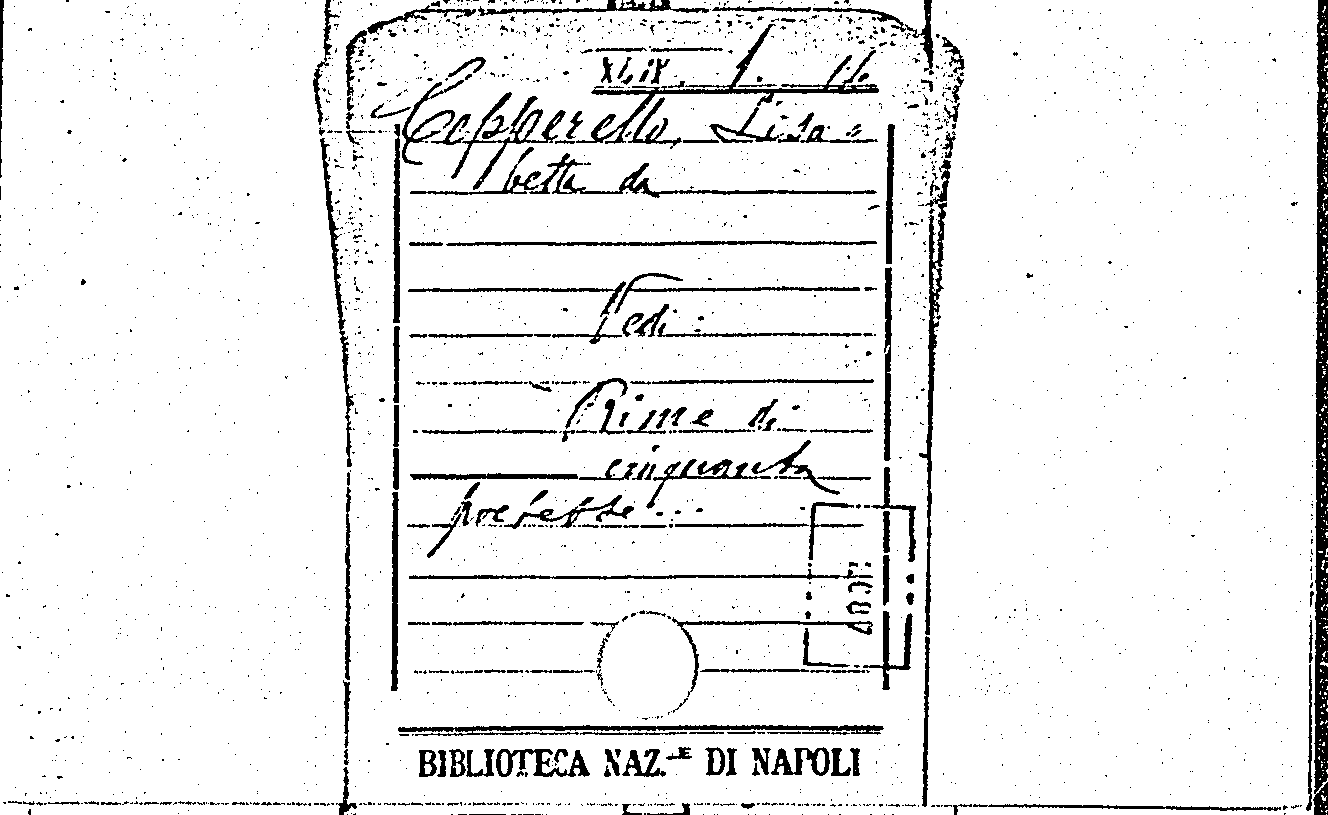 XLIX. 1. 14.
Cepperello, Lisa=
betta da
Vedi:
Rime di
cinquanta
poetesse...
BIBLIOTECA NAZ.LE DI NAPOLI